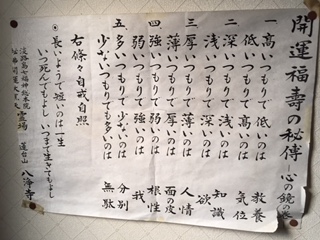 開運福壽の秘傳 心の鏡の巻
一 高いつもりで低いのは 教養
低いつもりで高いのは 気位
二 深いつもりで浅いのは 知識
浅いつもりで深いのは 欲
三 厚いつもりで薄いのは 人情
薄いつもりで厚いのは 面の皮
四 強いつもりで弱いのは 根性
弱いつもりで強いのは 我
五 多いつもりで少ないのは 分別
少ないつもりでも多いのは 無駄
右條々自戒自照
◎長いようで短いのは一生
いつ死んでもよし いつまで生きてもよし
淡路島七福神総本院
霊場 蓮台山 八浄寺